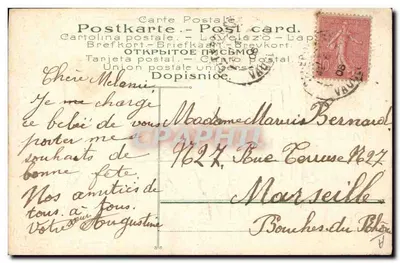 Carte Postale
Postkarte. - Post card.
Cartolina postale. - Levelező-Lap.
Brefkort - Briefkaart - Brevkort.
ОТКРЫТОЕ ПИСЬМО
Tarjeta postal. - Correio postal.
Union postale universelle.
Dopisnice.
Chère Mélanie
Je me charge
ce bébé de vous
porter mes
souhaits de
bonne fête
Nos amitiés de
tous à tous.
Votre Augustine
Madame Marius Bernard
N27, Rue N27
Marseille
Bouches du Rhône